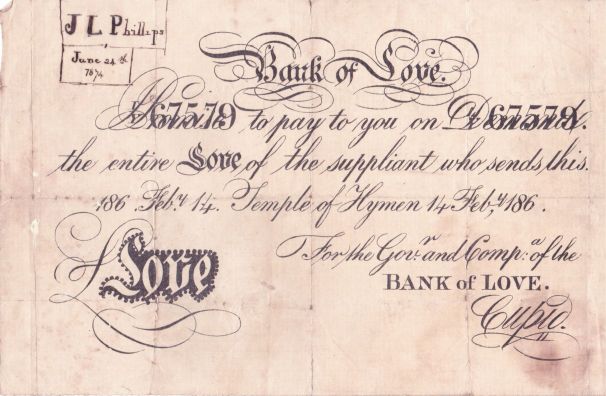 J L Phillips
June 24 th
78/4
Bank of Love.
I Promise to pay to you on Demand.
67579 67579
the entire Love of the suppliant who sends this.
186 . Feb.y 14. Temple of Hymen 14 Feb.y 186 .
For the Gov.r and Comp.a of the
BANK of LOVE.
£ Love
Cupid.